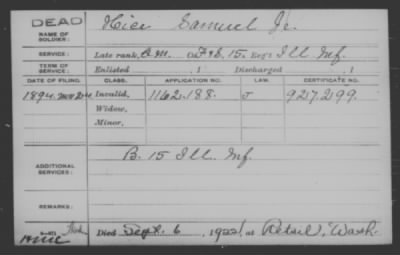 DEAD
NAME OF SOLDIER: Hier Samuel Jr.
SERVICE: Late rank, Co. F & B, 15. Reg't Ill Inf.
TERM OF SERVICE: Enlisted , 1 Discharged , 1
DATE OF FILING. CLASS. APPLICATION NO. LAW. CERTIFICATE NO.
1894. Nov 24 Invalid, 1162.188. J 927.299.
Widow,
Minor,
ADDITIONAL SERVICES: B. 15 Ill. Inf.
REMARKS:
Died Sept. 6, 1922, at Retsil, Wash.